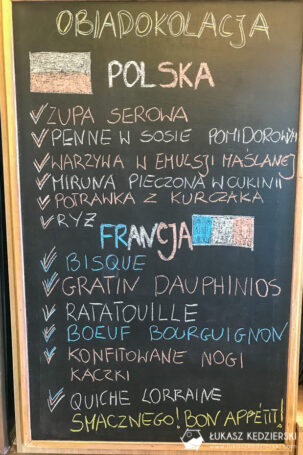 OBIADOKOLACJA
POLSKA
ZUPA SEROWA
PENNE W SOSIE POMIDOROWYM
WARZYWA W EMULSJI MAŚLANEJ
MIRUNA PIECZONA W CUKINII
POTRAWKA Z KURCZAKA
RYŻ
FRANCJA
BISQUE
GRATIN DAUPHINIOS
RATATOUILLE
BOEUF BOURGUIGNON
KONFITOWANE NOGI
KACZKI
QUICHE LORRAINE
SMACZNEGO! BON APPÉTIT!
ŁUKASZ KĘDZIERSKI